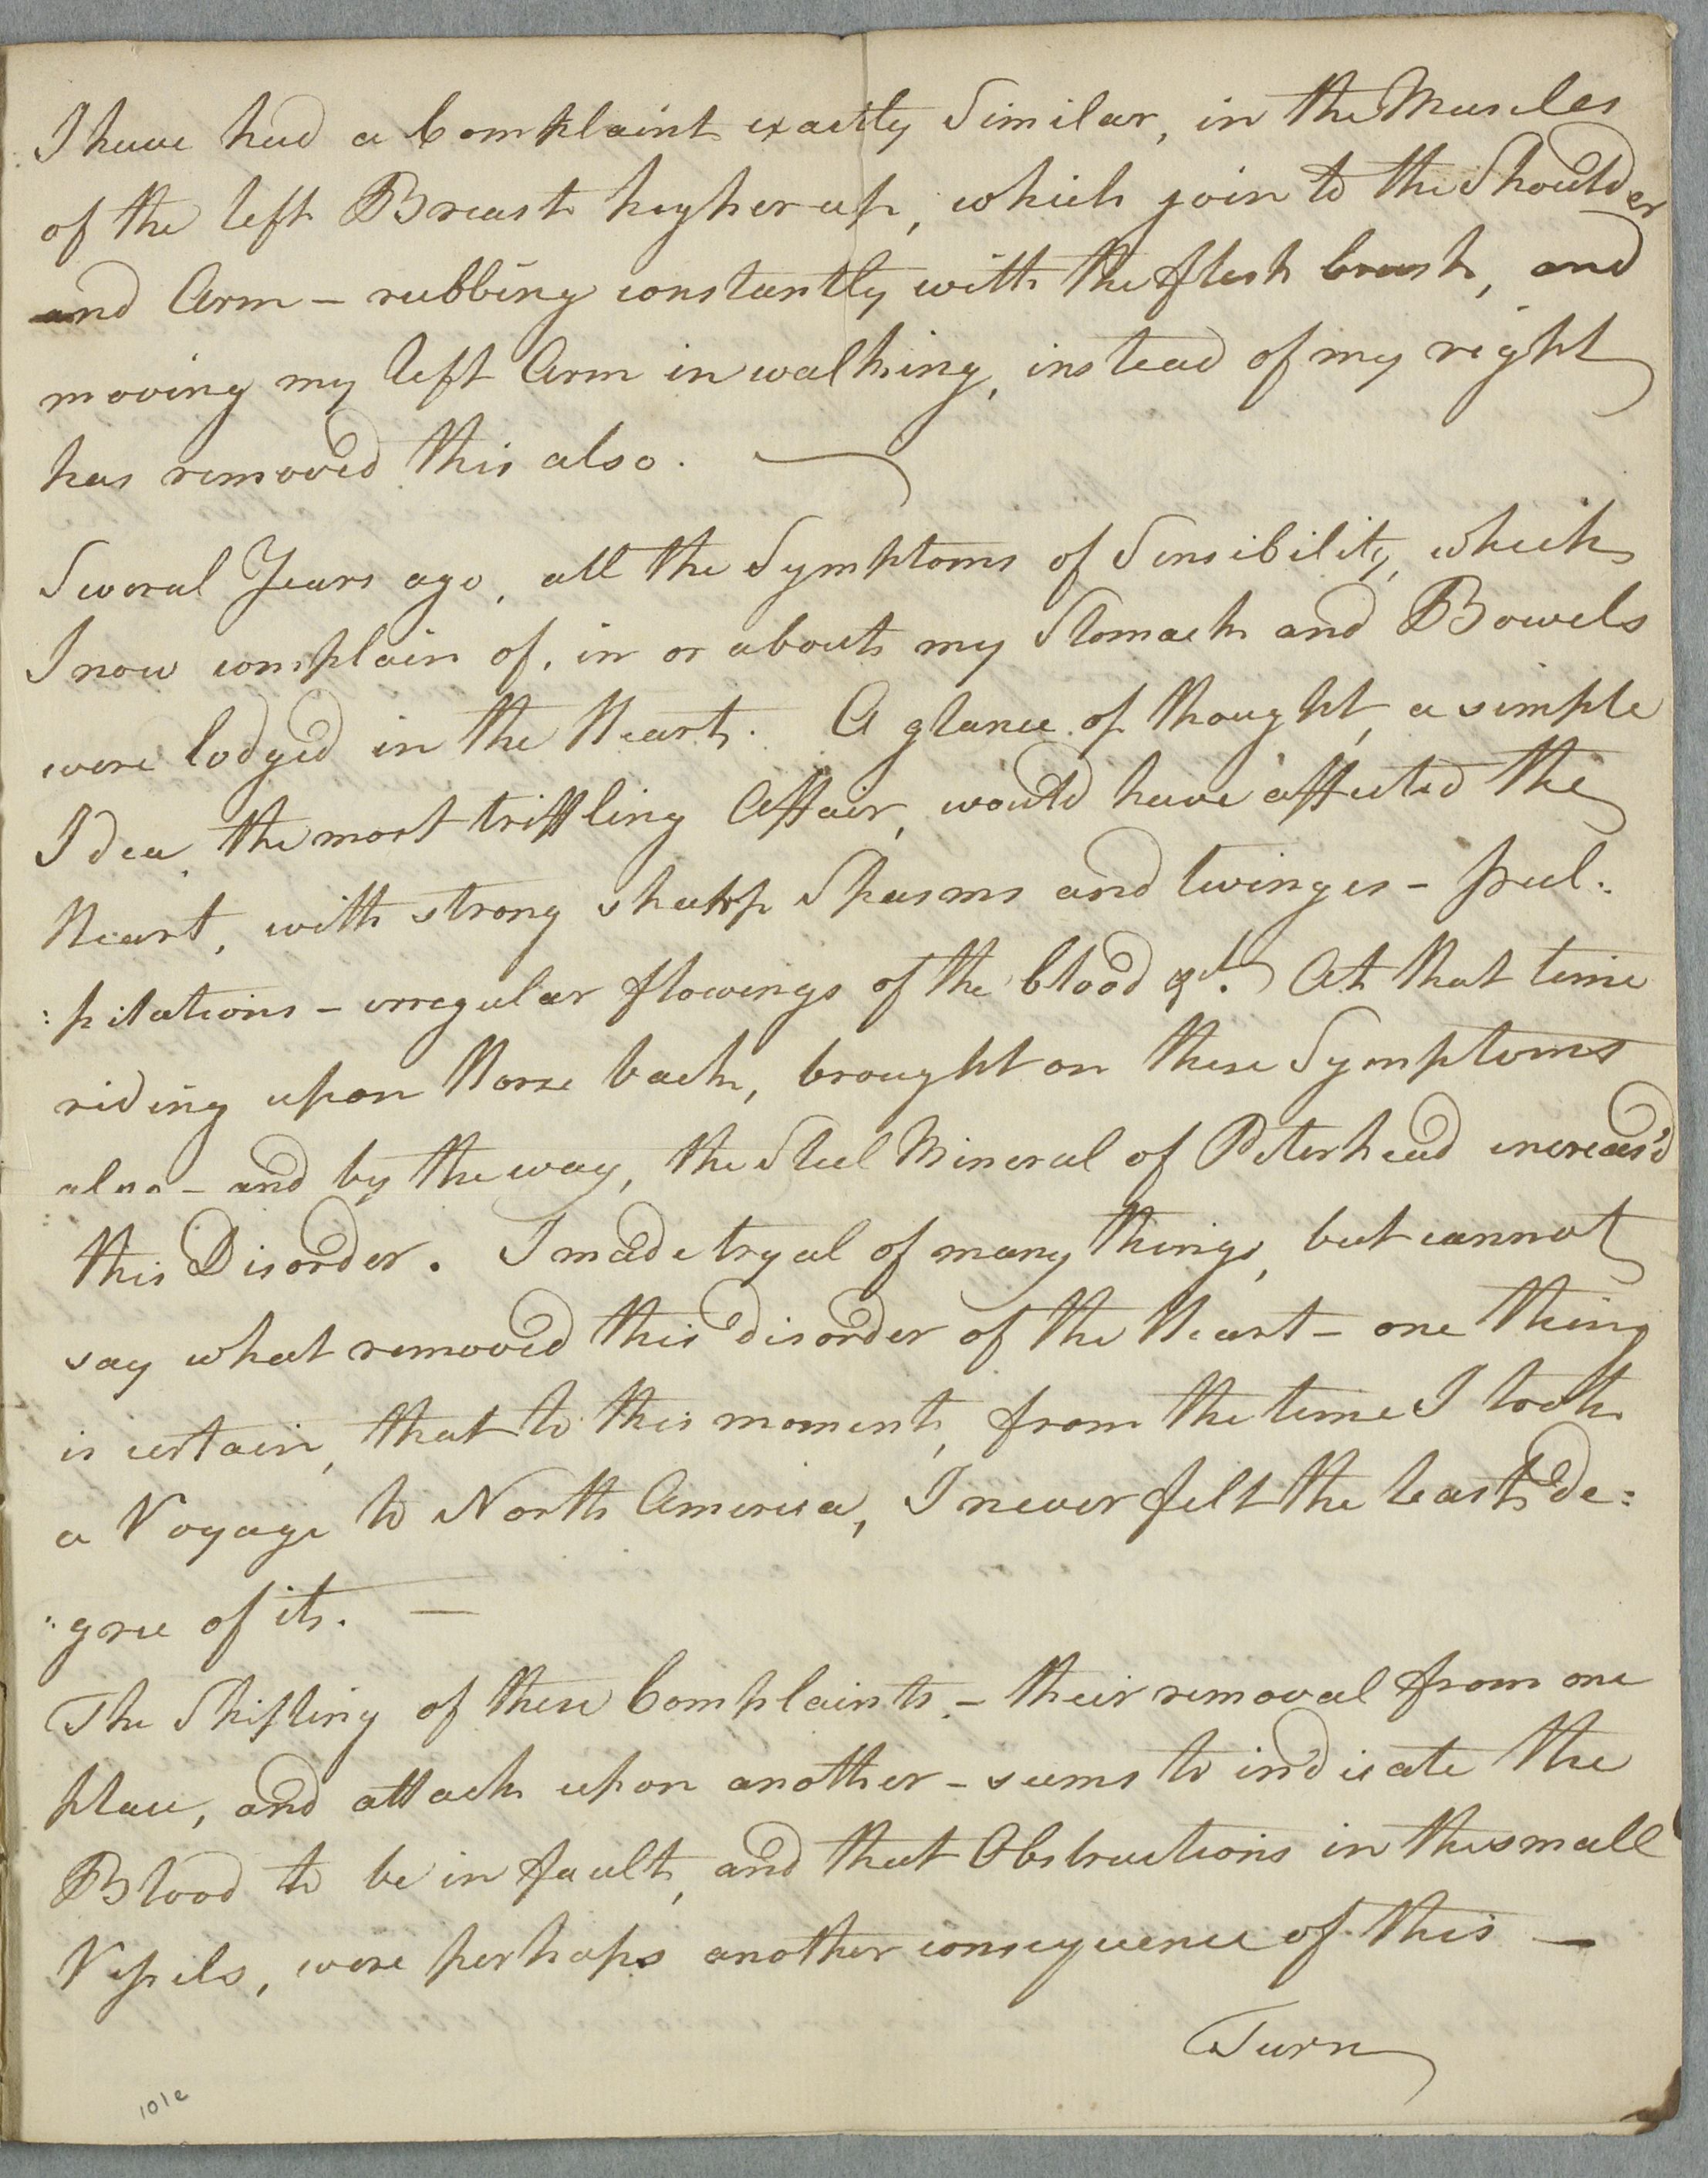 I have had a Complaint exactly Similar, in the Muscles
of the left Breast higher up, which join to the Shoulder
and Arm – rubbing constantly with the flesh brush, and
moving my left Arm in walking, instead of my right
has removed this also.
Several Years ago, all the Symptoms of Sensibility, which
I now complain of, in or about my Stomach and Bowels
were lodged in the Heart. A glance of thought, a simple
Idea, the most triffling Affair, would have affected the
Heart, with strong sharp Spasms and twinges – pal:
:pitations – irregular flowings of the blood &c. At that time
riding upon Horse back, brought on these Symptoms
also – and by the way, the Steel Mineral of Peterhead increas'd
this Disorder. I made tryal of many things, but cannot
say what removed this disorder of the Heart – one thing
is certain, that to this moment, from the time I took
a Voyage to North America, I never felt the least de:
:gree of it. —
The Shifting of these Complaints, – their removal from one
place, and attack upon another – seems to indicate the
Blood to be in fault, and that Obstructions in the small
Vessels, were perhaps another consequence of this —
Turn
101e